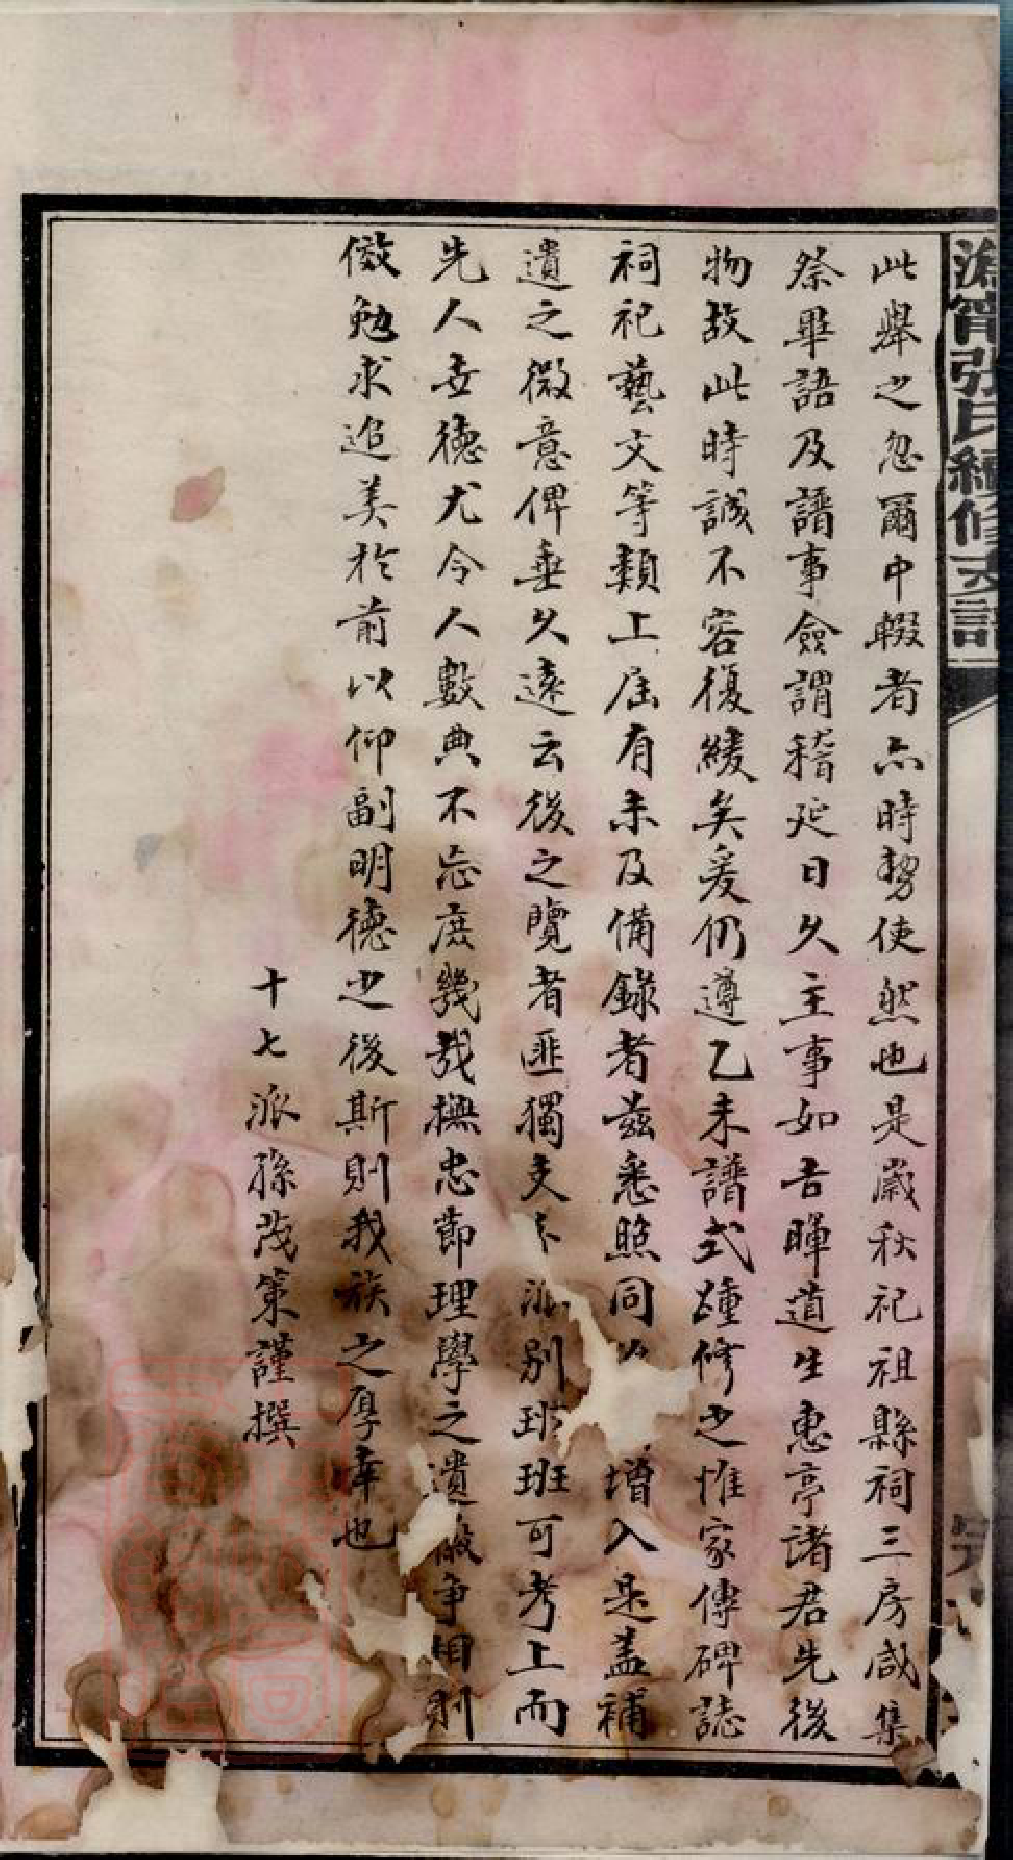 溈甯張氏續修支譜
此舉之忽爾中輟者亦時勢使然也是歲秋祀祖縣祠三房咸集
祭畢語及譜事僉謂稽延日久主事如吉暉道生惠亭諸君先後
物故此時誠不容復緩矣爰仍遵乙未譜式踵修之惟家傳碑誌
祠祀藝文等類上屆有未及備錄者茲悉照同增入是盖補
遺之微意俾垂久遠云後之覽者匪獨支派別班班可考上而
先人世德尤令人數典不忘庶幾我撫忠節理學之遺徽爭相則
傚勉求追美於前以仰副明德之後斯則我族之厚幸也
十七派孫茂策謹撰